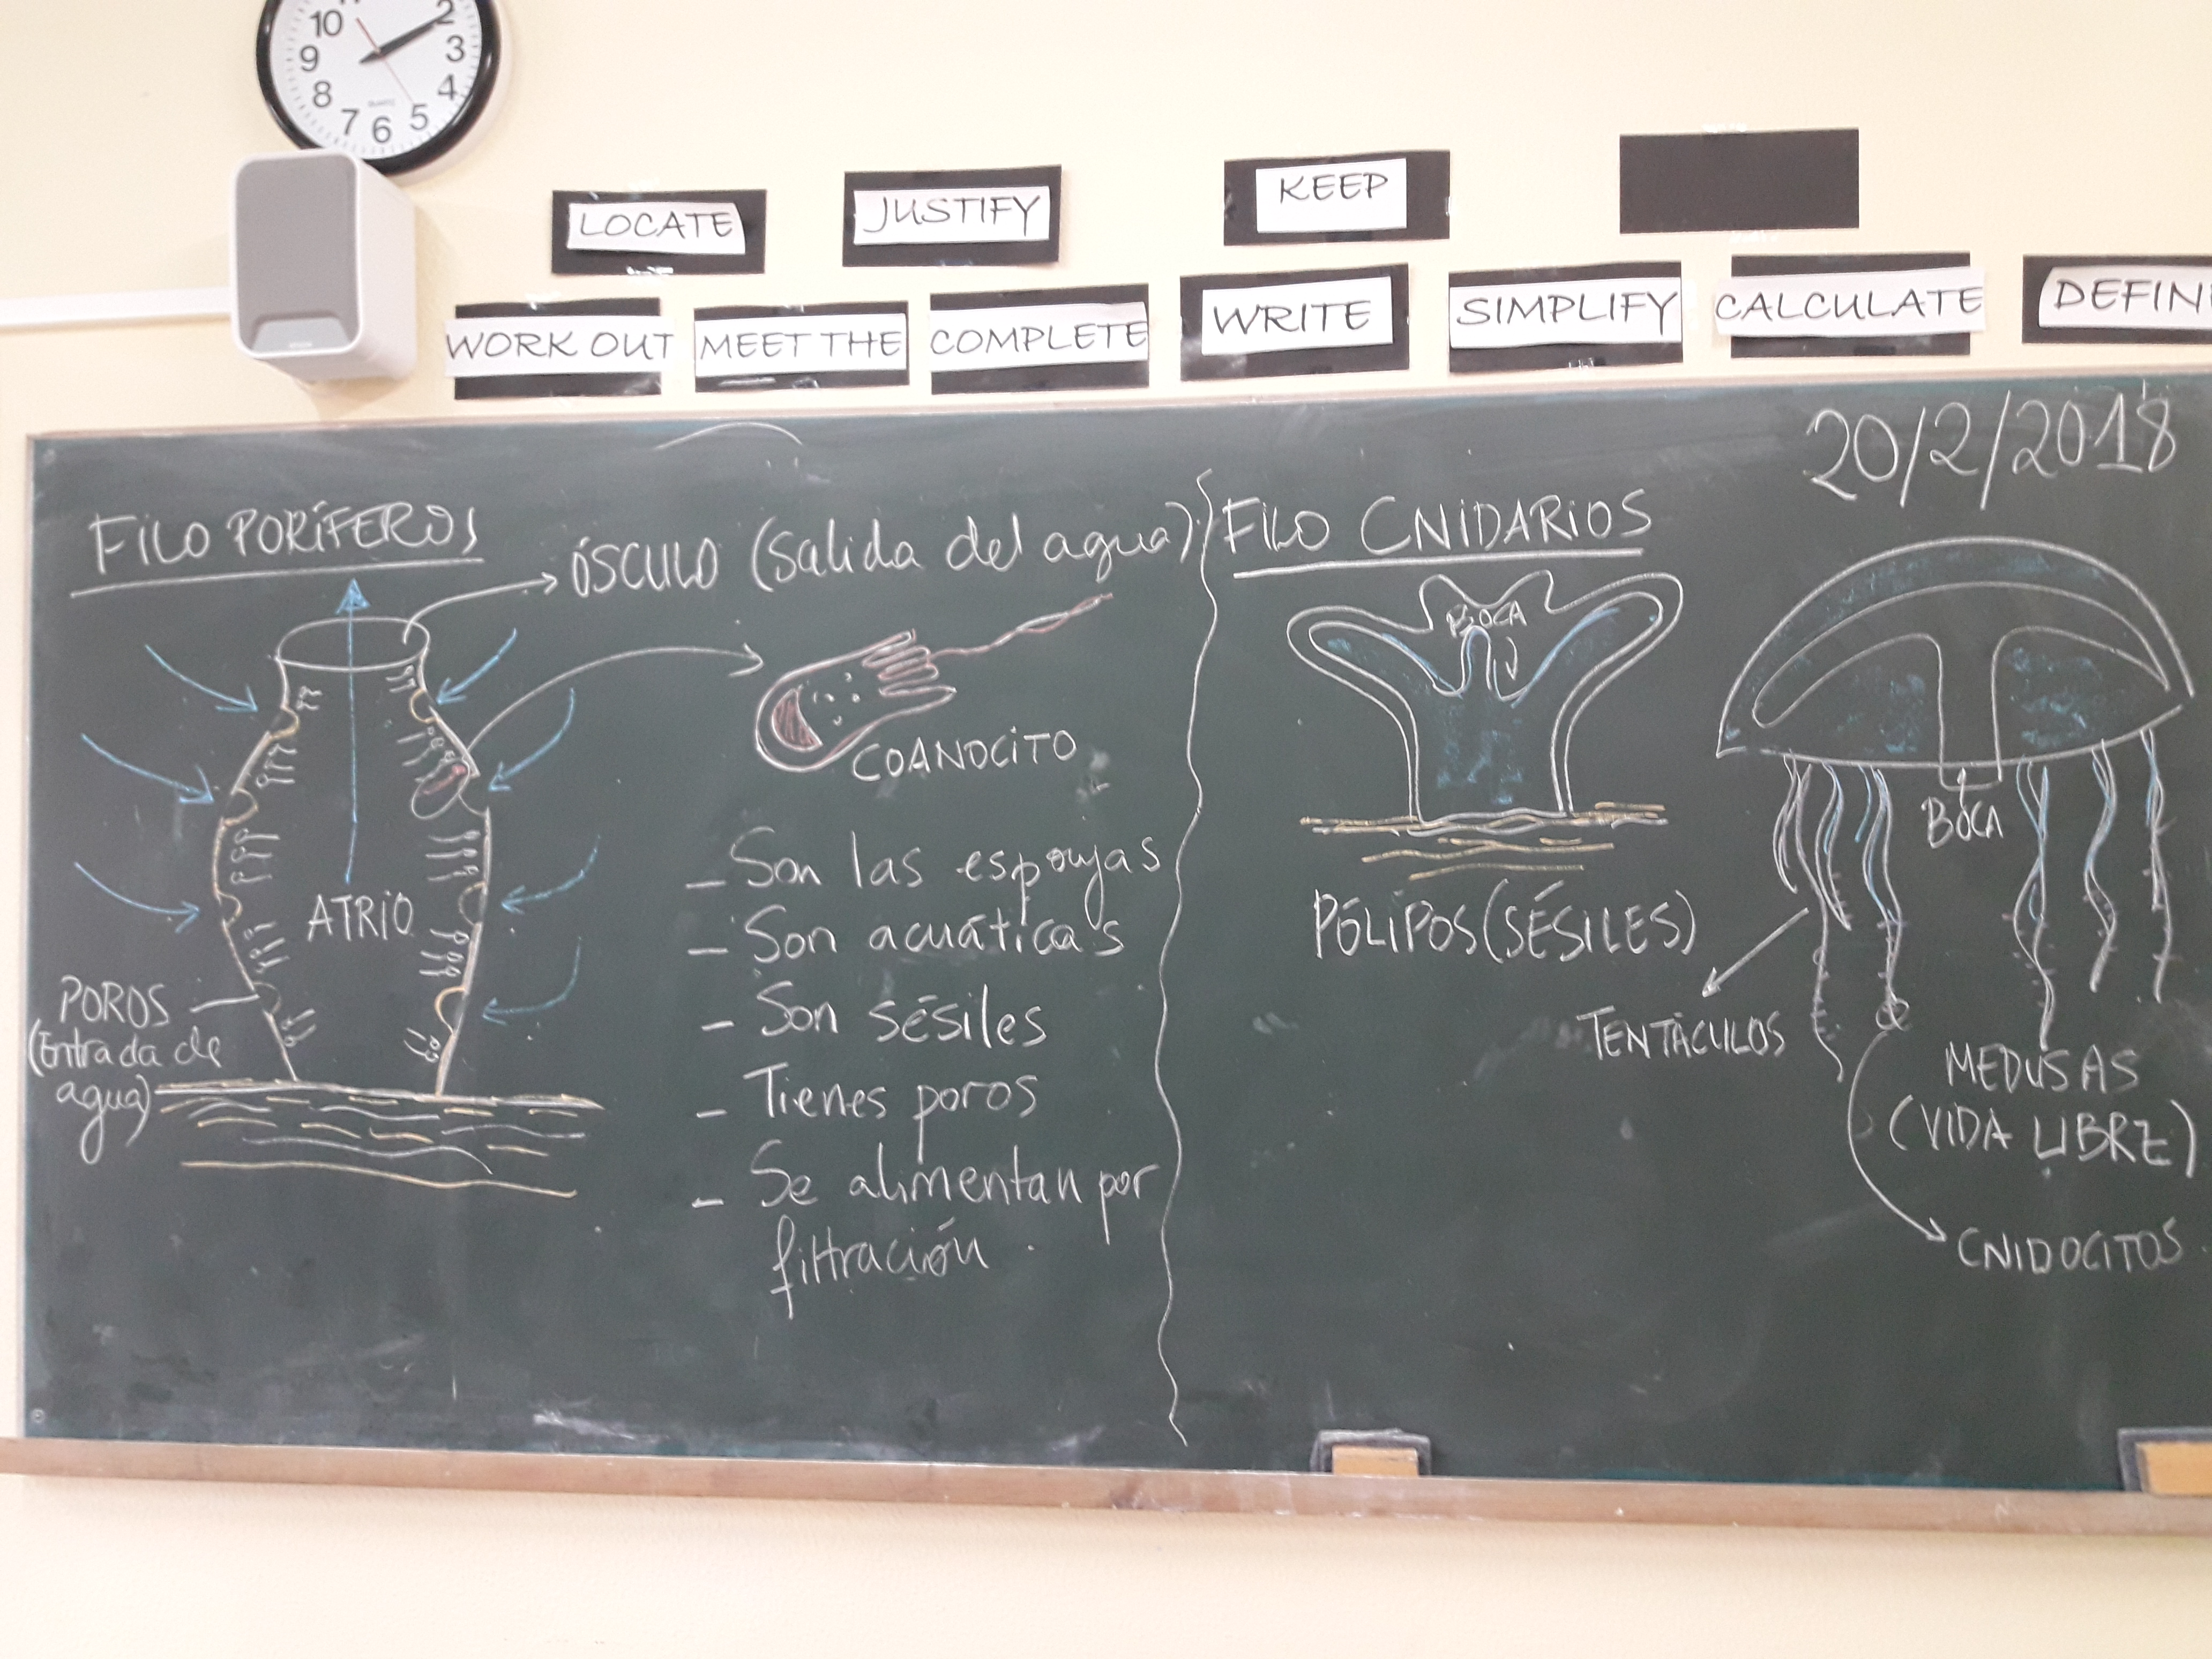 10
2
9
3
8
4
7
6
5
QUARTZ
LOCATE
JUSTIFY
KEEP
WORK OUT
MEET THE
COMPLETE
WRITE
SIMPLIFY
CALCULATE
DEFIN
20/2/2018
FILO PORÍFEROS
ÓSCULO (Salida del agua)
COANOCITO
ATRIO
POROS
(Entrada de
agua)
- Son las esponjas
- Son acuáticas
- Son sésiles
- Tienes poros
- Se alimentan por
filtración.
FILO CNIDARIOS
BOCA
PÓLIPOS (SÉSILES)
BOCA
TENTÁCULOS
MEDUSAS
(VIDA LIBRE)
CNIDOCITOS